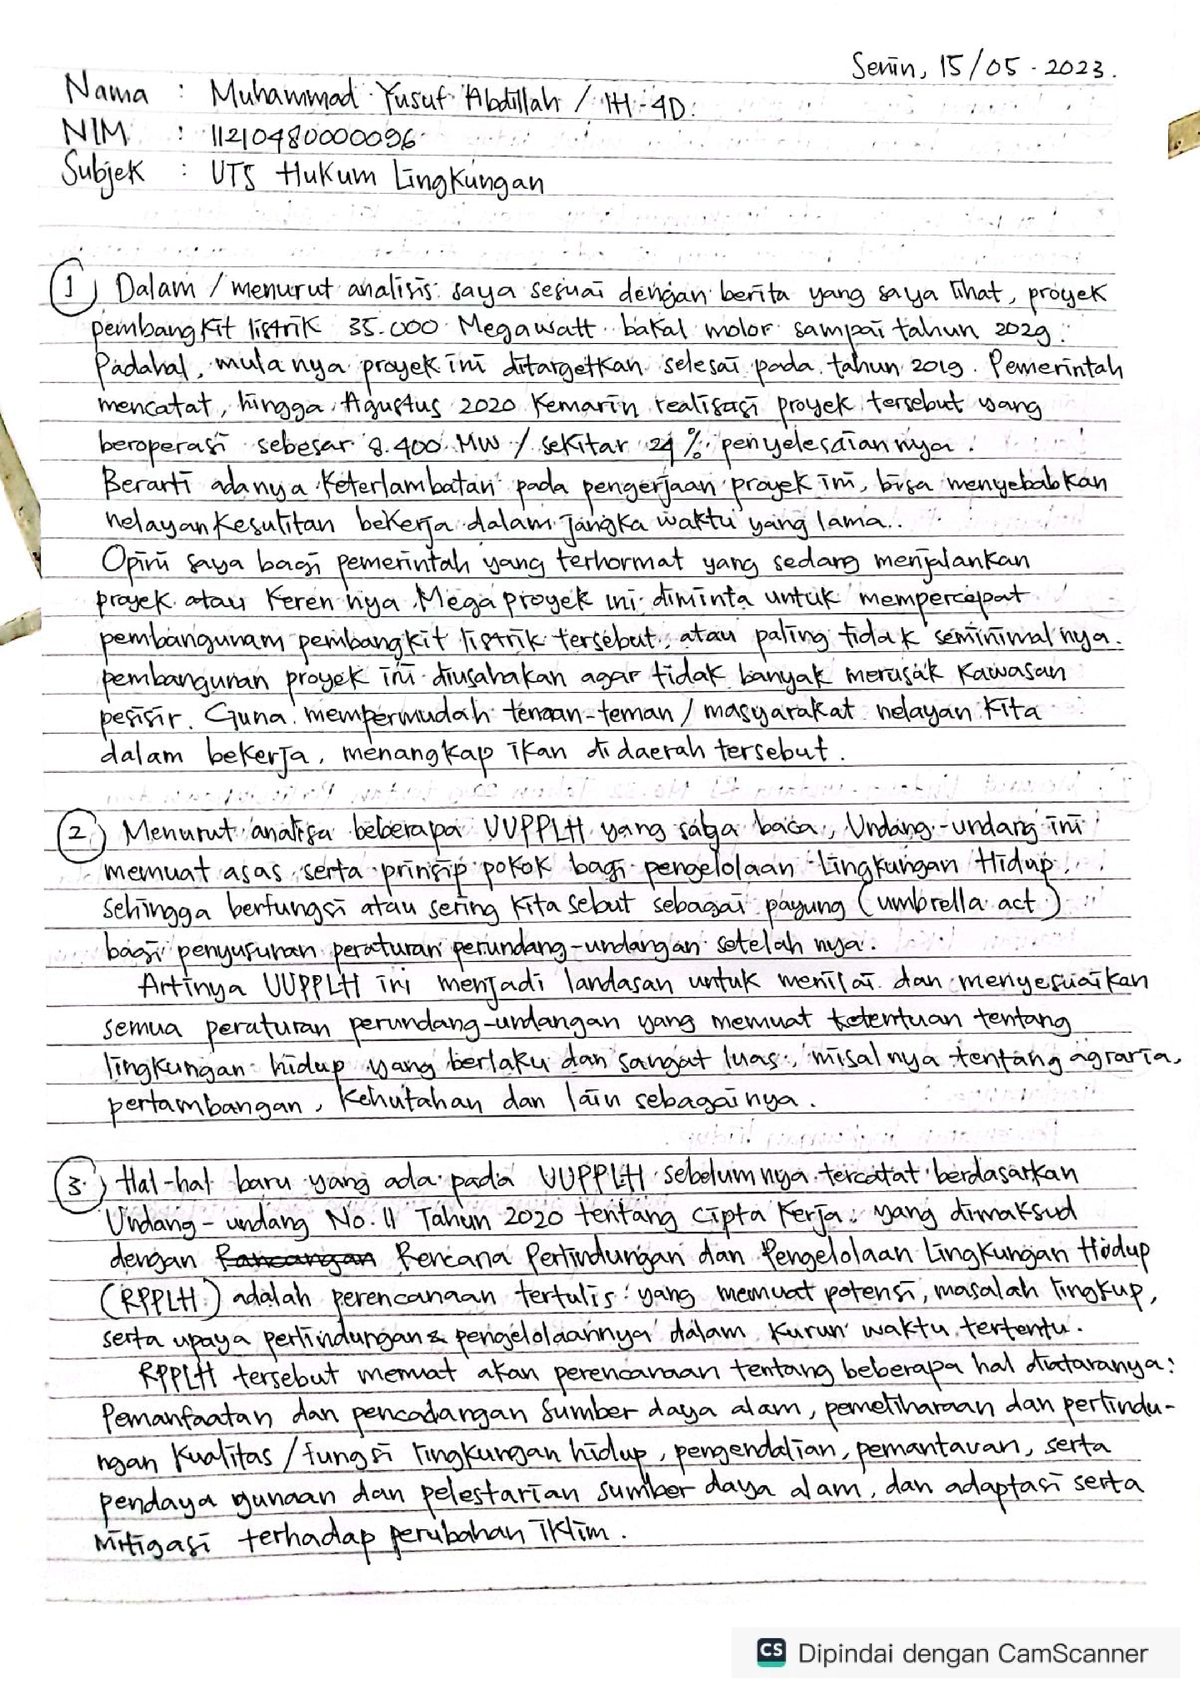 Senin, 15/05-2023.
Nama : Muhammad Yusuf Abdillah / IH-4D
NIM : 11210480000096
Subjek : UTS Hukum Lingkungan
1) Dalam / menurut analisis saya sesuai dengan berita yang saya lihat, proyek
pembangkit listrik 35.000 Megawatt bakal molor sampai tahun 2029.
Padahal, mulanya proyek ini ditargetkan selesai pada tahun 2019. Pemerintah
mencatat, hingga Agustus 2020 kemarin realisasi proyek tersebut yang
beroperasi sebesar 8.400 MW / sekitar 24% penyelesaiannya.
Berarti adanya keterlambatan pada pengerjaan proyek ini, bisa menyebabkan
nelayan kesulitan bekerja dalam jangka waktu yang lama..
Opini saya bagi pemerintah yang terhormat yang sedang menjalankan
proyek atau kerennya Megaproyek ini diminta untuk mempercepat
pembangunam pembangkit listrik tersebut, atau paling tidak seminimalnya
pembangunan proyek ini diusahakan agar tidak banyak merusak kawasan
pesisir. Guna mempermudah teman-teman / masyarakat nelayan kita
dalam bekerja, menangkap ikan di daerah tersebut.
2) Menurut analisa beberapa UUPPLH yang saya baca, Undang-undang ini
memuat asas serta prinsip pokok bagi pengelolaan Lingkungan Hidup,
sehingga berfungsi atau sering kita sebut sebagai payung (umbrella act)
bagi penyusunan peraturan perundang-undangan setelahnya.
Artinya UUPPLH ini menjadi landasan untuk menilai dan menyesuaikan
semua peraturan perundang-undangan yang memuat ketentuan tentang
lingkungan hidup yang berlaku dan sangat luas, misalnya tentang agraria,
pertambangan, kehutahan dan lain sebagainya.
3.) Hal-hal baru yang ada pada UUPPLH sebelumnya tercatat berdasarkan
Undang-undang No. 11 Tahun 2020 tentang Cipta Kerja. yang dimaksud
dengan Rancangan Rencana Perlindungan dan Pengelolaan Lingkungan Hidup
(RPPLH) adalah perencanaan tertulis yang memuat potensi, masalah lingkup,
serta upaya perlindungan & pengelolaannya dalam kurun waktu tertentu.
RPPLH tersebut memuat akan perencanaan tentang beberapa hal diataranya:
Pemanfaatan dan pencadangan sumber daya alam, pemeliharaan dan perlindu-
ngan kualitas / fungsi lingkungan hidup, pengendalian, pemantauan, serta
pendaya gunaan dan pelestarian sumber daya alam, dan adaptasi serta
mitigasi terhadap perubahan iklim.
CS Dipindai dengan CamScanner